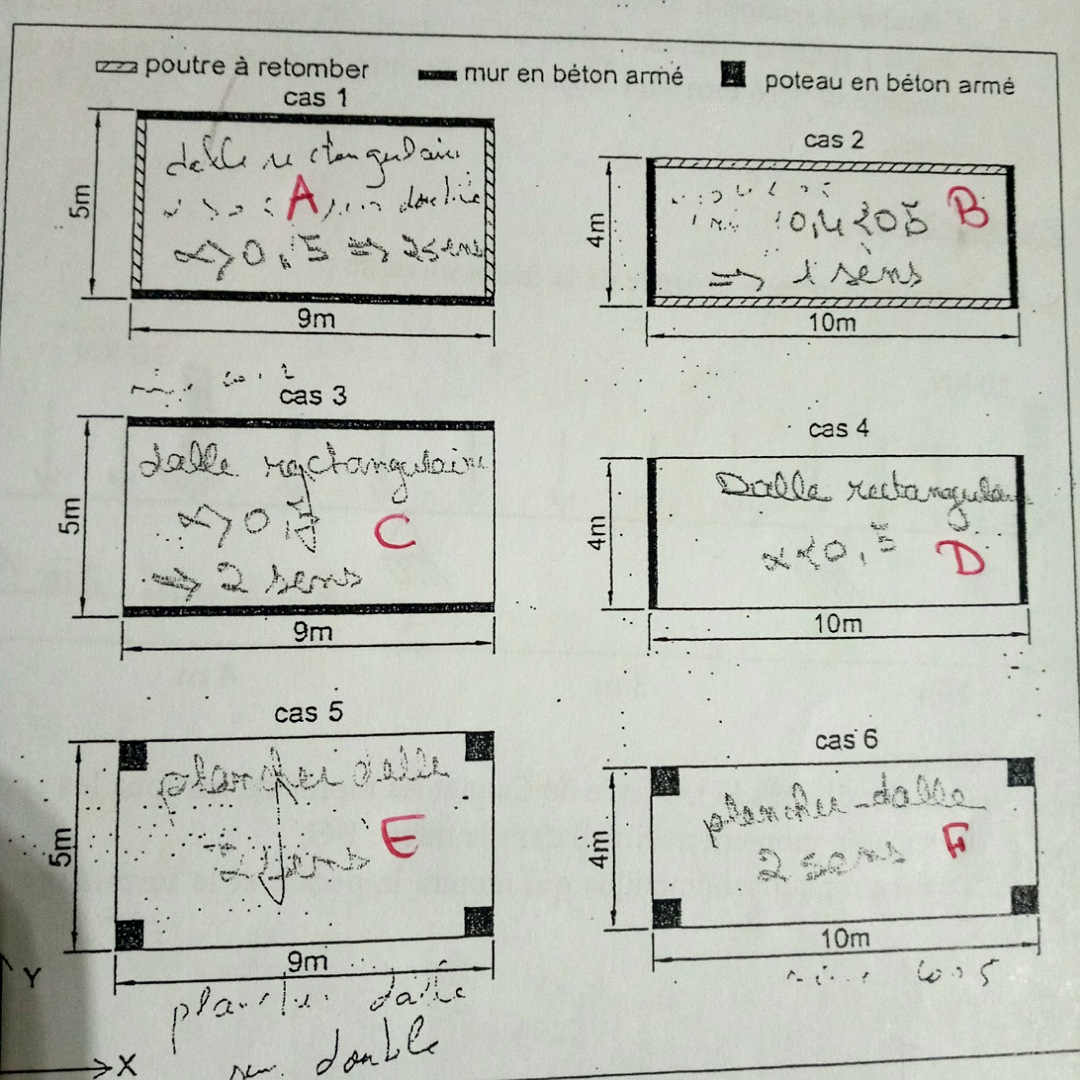 poutre à retomber mur en béton armé poteau en béton armé
cas 1
dalle rectangulaire
A
α>0,5 => 2 sens
5m
9m
cas 2
B
0,4<0,5
=> 1 sens
4m
10m
cas 3
dalle rectangulaire
α>0,5
C
=> 2 sens
5m
9m
cas 4
Dalle rectangulaire
α<0,5
D
4m
10m
cas 5
plancher dalle
2 sens
E
5m
9m
cas 6
plancher-dalle
2 sens
F
4m
10m
Y
X
double